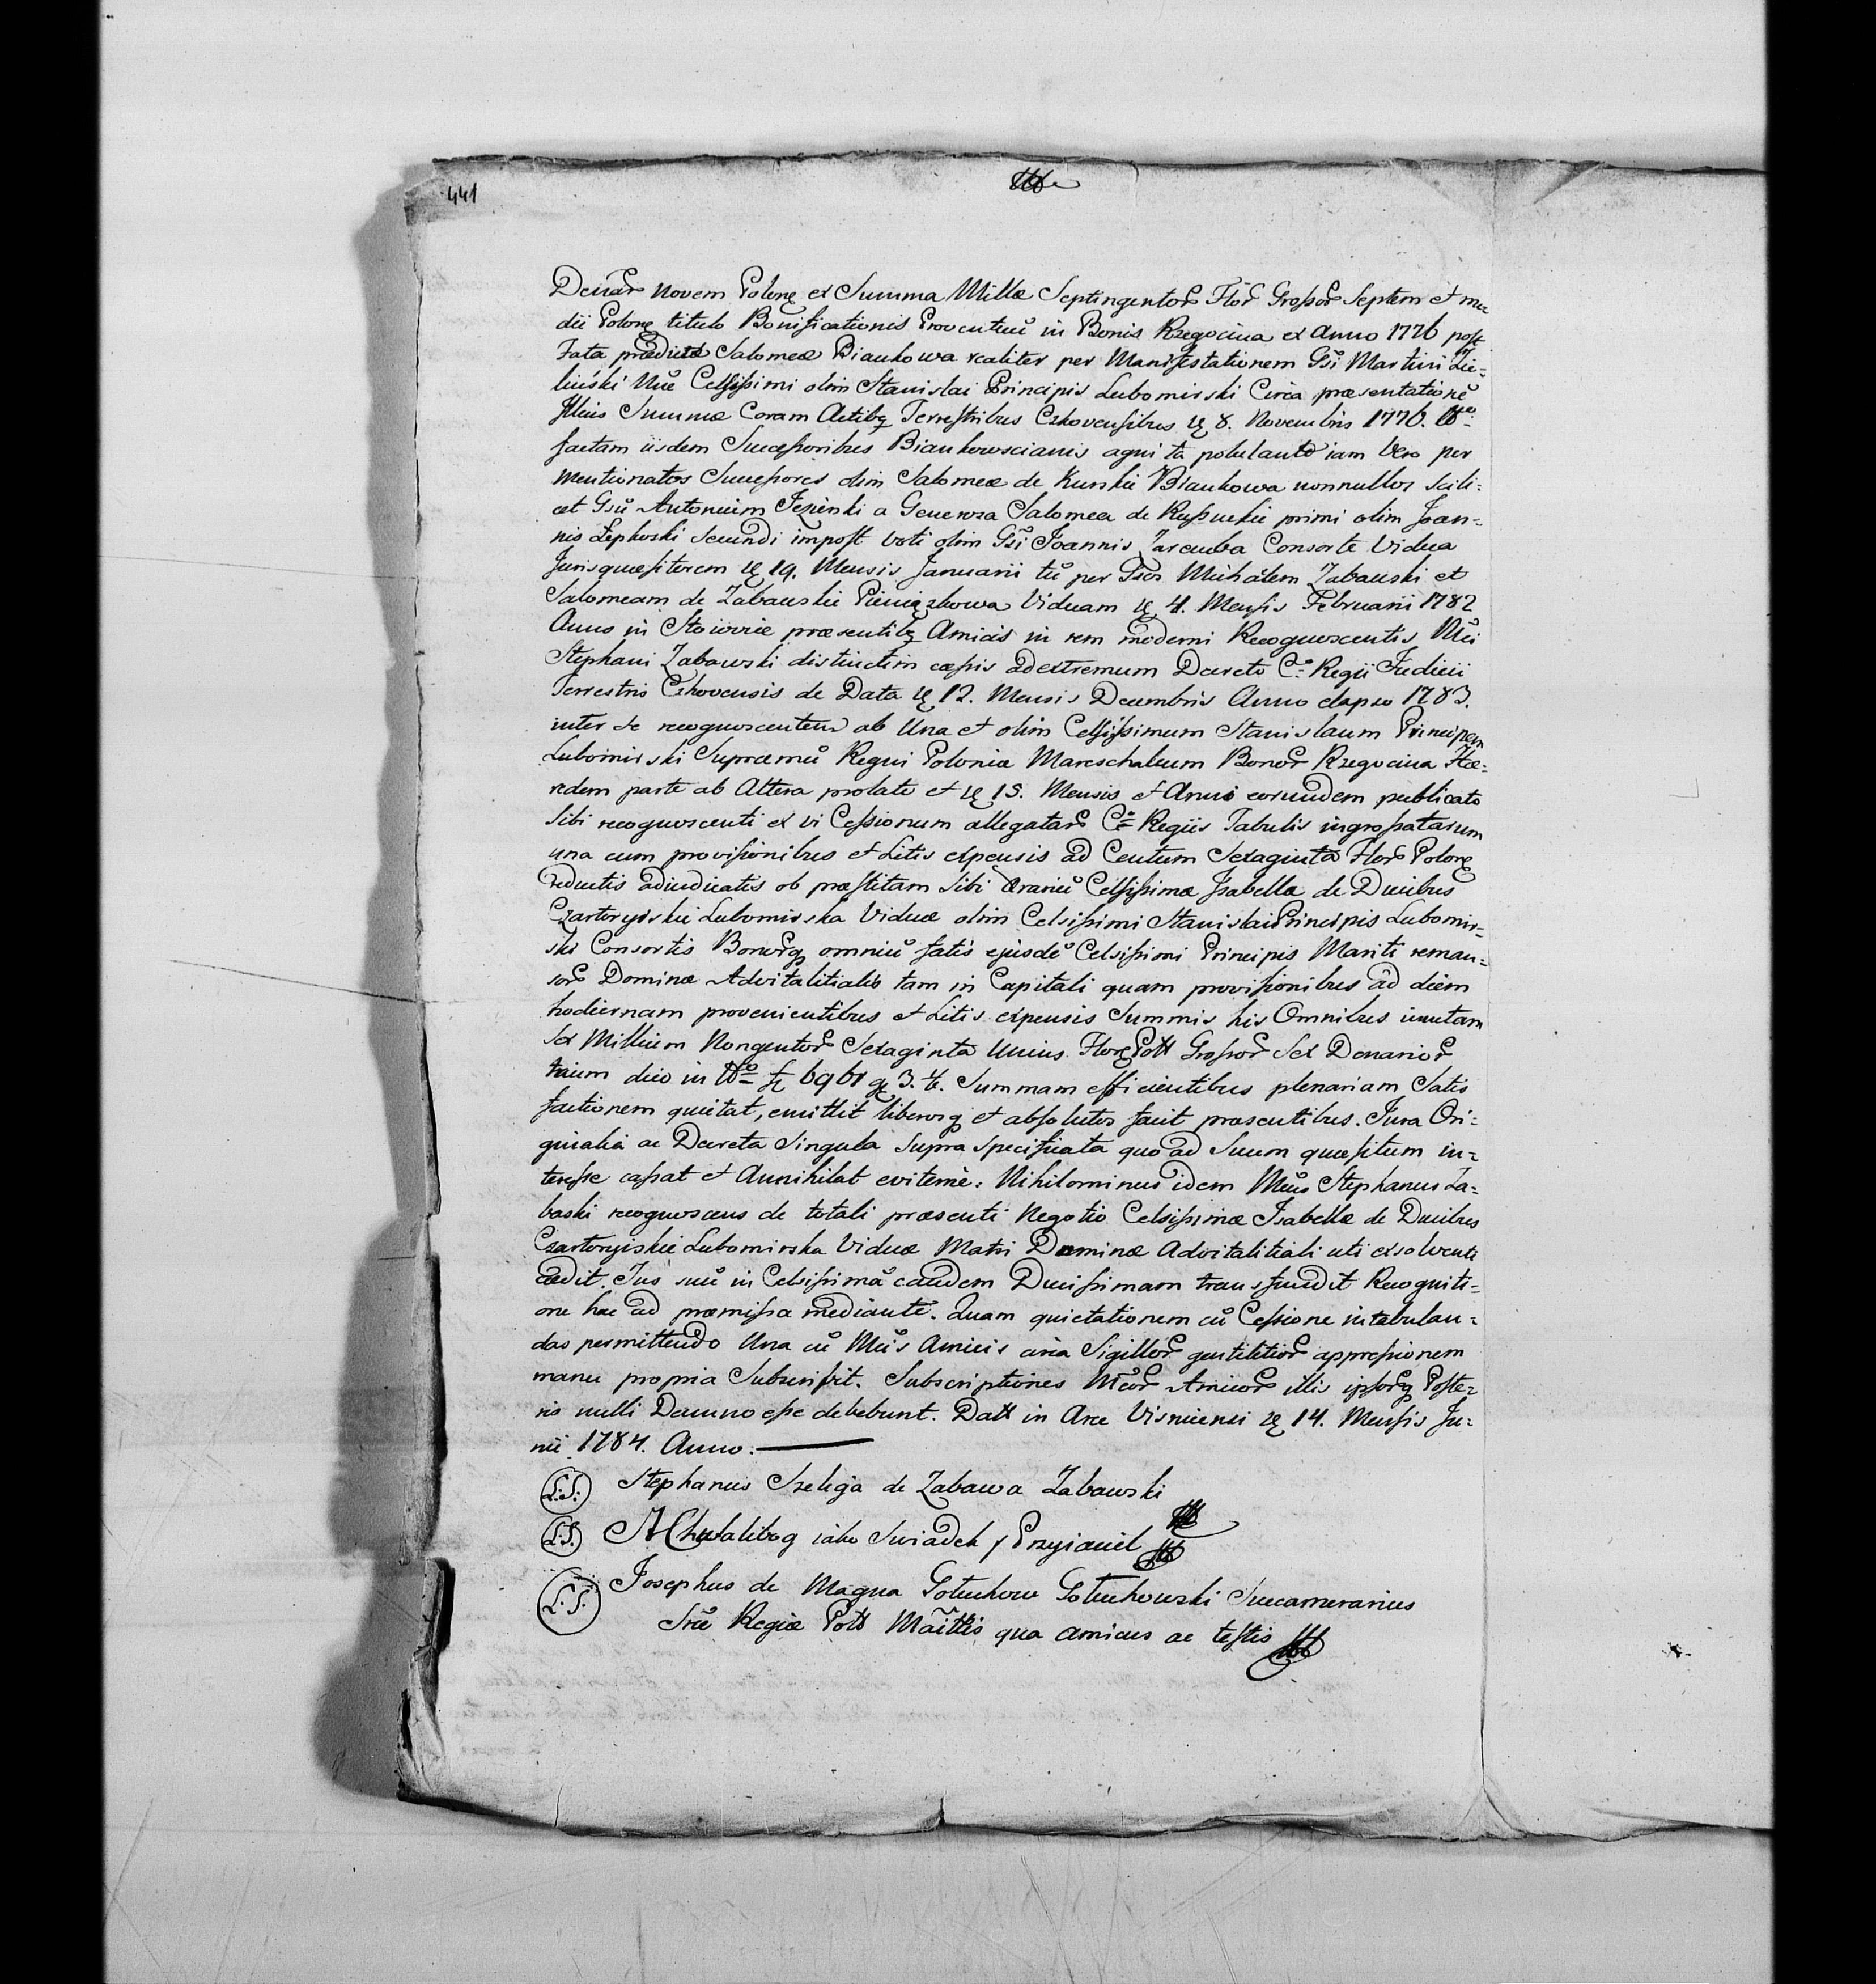 441
Denar̃ Novem Polonę et Summa Mille Septingentor̃ Flor̃ Grossor̃ Septem et me
dii Polonę titulo Bonificationis Proventuũ in Bonis Rzegocina ex Anno 1776 post
Fata prædictæ Salomeæ Biankowa realiter per Manifestationem Gsi Martini Zie-
liński Celsissimi olim Stanislai Principis Lubomirski Circa præsentationẽ
Illius Summæ Coram Actibq Terrestribus Czhovensibus 8. Novembris 1776.
factam iisdem Successoribus Biankowscianis agni ta postulante iam Vero per
Mentionatos Successores olim Salomeæ de Kunskie Biankowa nonnullos scili-
cet Gsũ Antonium Jezierski a Generosa Salomea de primi olim Joan-
nis Łępkoski secundi impost Voti olim Gsi Joannis Zaremba Consorte Vidua
Jurisquæsitorem 19. Mensis Januarii tũ per Gsos Michälem Zabawski et
Salomeam de Zabawskie Pieniązkowa Viduam 4. Mensis Februarii 1782
Anno in Stoiowie præsentibq Amicis in rem moderni Recognoscentis Mci
Stephani Zabawski distinctim cæssis ad extremum Decreto Regii Judicii
Terrestris Czhovensis de Data 12. Mensis Decembris Anno elapso 1783.
inter se recognoscentem ab Una et olim Celsissimum Stanislaum Principem
Lubomirski Supræmũ Regni Poloniæ Mareschalcum Bonor̃ Rzegocina Hæ-
redem parte ab Altera prolato et 15. Mensis et Anni eorundem publicato
sibi recognoscenti ex vi Cessionum allegatar̃ Regiis Tabulis ingrossatarum
una cum provisionibus et Litis expensis ad Centum Sexaginta Flor̃ Polonę
reductis adiudicatis ob præstitam sibi Celsissimæ Isabellæ de Ducibus
Czartoryiskie Lubomirska Viduæ olim Celsissimi Stanislai Principis Lubomir-
ski Consortis Bonor̃q omniũ fatis ejusdẽ Celsissimi Principis Mariti reman-
sor̃ Dominæ Advitalitialis tam in Capitali quam provisionibus ad diem
hodiernam provenientibus et Litis expensis Summis his Omnibus unitam
Sex Millium Nongentor̃ Sexaginta Unius Flor̃ Poll Grossor̃ Sex Denarior̃
trium dico in 6961 Summam efficientibus plenariam Satis
factionem quietat, emittit liberosq et absolutos facit præsentibus. Jura Ori-
ginalia ac Decreta Singula supra specificata quo ad Suum quæsitum in-
teresse cassat et Annihilat eviternè: Nihilominus idem Mcus Stephanus Za-
baski recognoscens de totali præsenti Negotio Celsissimæ Isabellæ de Ducibus
Czartoryiskie Lubomirska Viduæ Matri Dominæ Advitalitiali uti exsolventi
cedit. Jus suũ in Celsissimã eandem Ducissimam transfundit Recogniti-
one hac ad præmissa mediante. Quam quietationem cũ Cessione intabulan-
das permittendo Una cũ Mcis Amicis circa Sigillor̃ gentilitior̃ appressionem
manu propria Subscripsit. Subscriptiones Mcor̃ Amicor̃ illis ipsor̃q Poste-
ris nulli Damno esse debebunt. Datt in Arce Visnicensi 14. Mensis Ju-
nii 1784. Anno.
L.S. Stephanus Szeliga de Zabawa Zabawski
L.S. A Chwalibog iako Swiadek y Przyiaciel
L.S. Josephus de Magna Gołuchow Gołuchowski Succamerarius
Sræ Regiæ Poll Maittis qua amicus ac testis